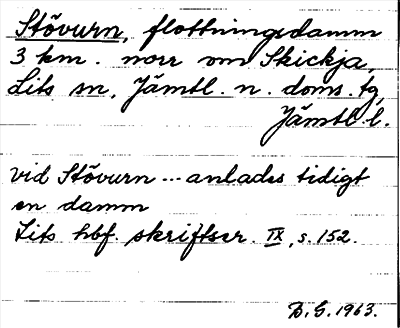 Stövurn, flottningsdamm
3 km. norr om Skickja,
Lits sn, Jämtl. n. doms. tg,
Jämtl. l.
vid Stövurn --- anlades tidigt
en damm
Lits hbf. skriftser. IX, s. 152.
B. G. 1963.